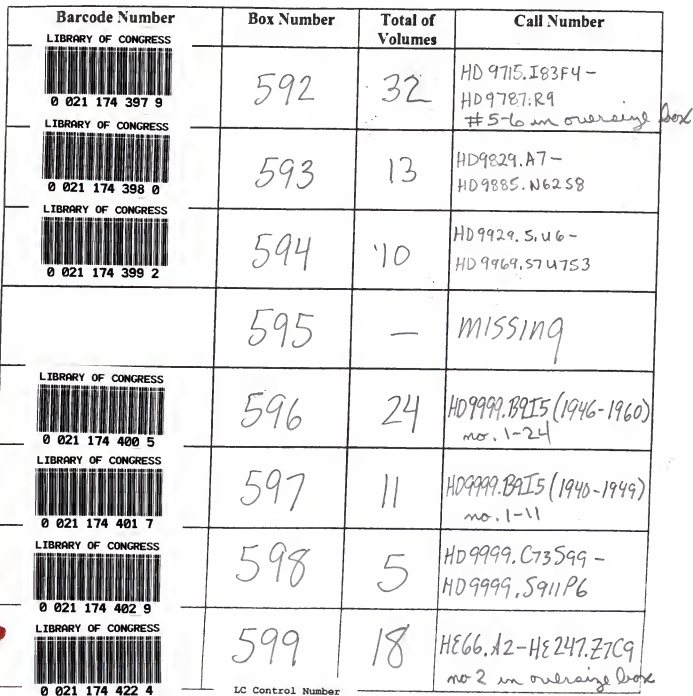 Barcode Number Box Number Total of Volumes Call Number
LIBRARY OF CONGRESS
0 021 174 397 9
592 32 HD 9715.I83F4 -
HD9787.R9
#5-6 in oversize box
LIBRARY OF CONGRESS
0 021 174 398 0
593 13 HD9829.A7 -
HD9885.N62S8
LIBRARY OF CONGRESS
0 021 174 399 2
594 10 HD9929.5.U6 -
HD9969.S7U753
595 — missing
LIBRARY OF CONGRESS
0 021 174 400 5
596 24 HD9999.B9I5 (1946-1960)
no. 1-24
LIBRARY OF CONGRESS
0 021 174 401 7
597 11 HD9999.B9I5 (1940-1949)
no. 1-11
LIBRARY OF CONGRESS
0 021 174 402 9
598 5 HD9999.C73S99 -
HD9999.S911P6
LIBRARY OF CONGRESS
0 021 174 422 4
599 18 HE66.A2-HE247.Z7C9
no 2 in oversize box
LC Control Number